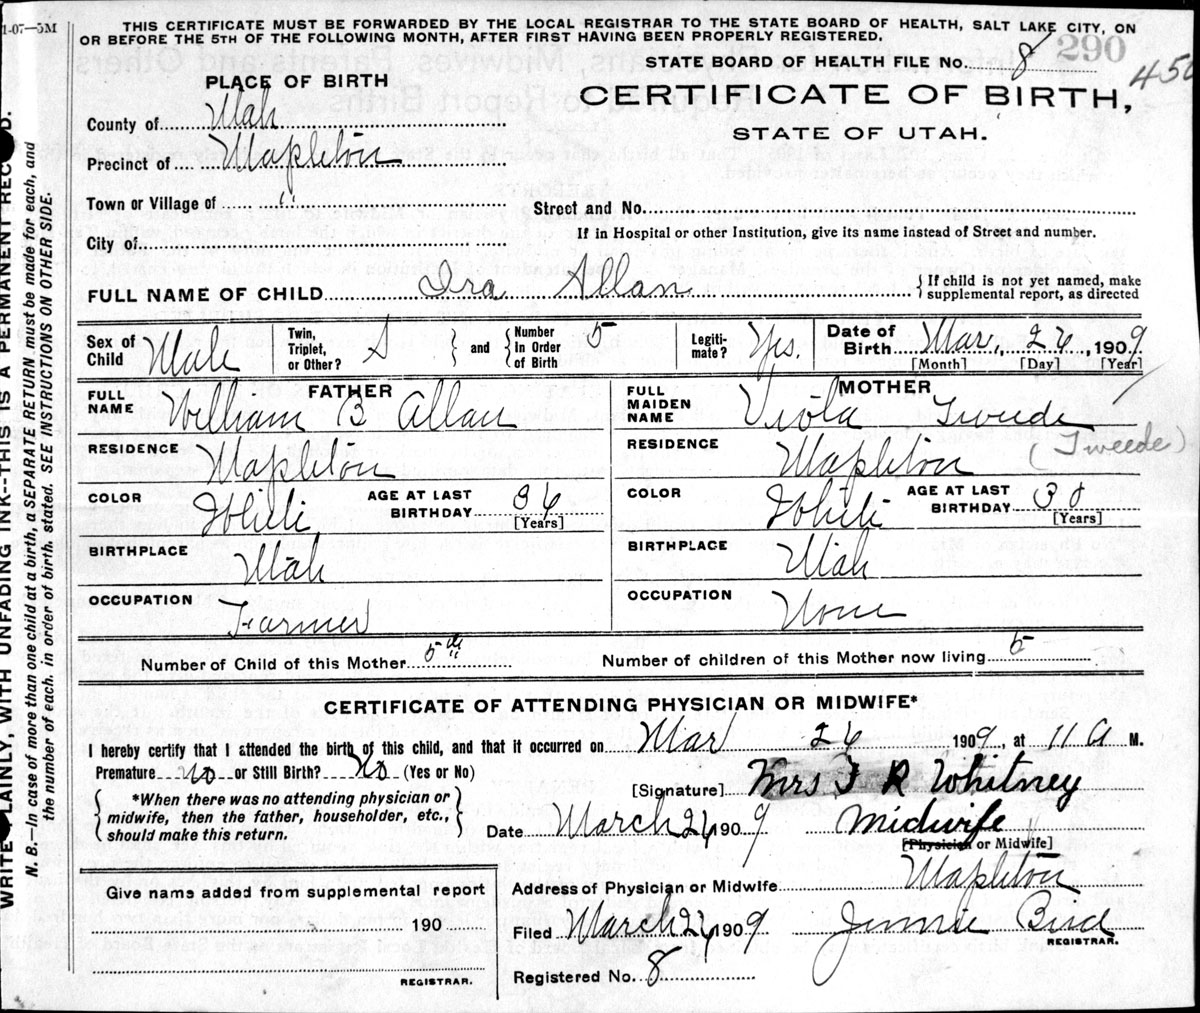 1-07—5M
THIS CERTIFICATE MUST BE FORWARDED BY THE LOCAL REGISTRAR TO THE STATE BOARD OF HEALTH, SALT LAKE CITY, ON
OR BEFORE THE 5TH OF THE FOLLOWING MONTH, AFTER FIRST HAVING BEEN PROPERLY REGISTERED.
290
STATE BOARD OF HEALTH FILE No. 8
450
PLACE OF BIRTH
CERTIFICATE OF BIRTH,
STATE OF UTAH.
County of Utah
Precinct of Mapleton
Town or Village of "
Street and No.
City of
If in Hospital or other Institution, give its name instead of Street and number.
FULL NAME OF CHILD Ira Allan { If child is not yet named, make
supplemental report, as directed
Sex of Child Male
Twin, Triplet, or Other? S } and { Number In Order of Birth 5
Legiti-mate? Yes.
Date of Birth Mar, 26, 1909
[Month] [Day] [Year]
FATHER
FULL NAME William B Allan
MOTHER
FULL MAIDEN NAME Viola Tweede
RESIDENCE Mapleton
RESIDENCE Mapleton
(Tweede)
COLOR White AGE AT LAST BIRTHDAY 36 [Years]
COLOR White AGE AT LAST BIRTHDAY 30 [Years]
BIRTHPLACE Utah
BIRTHPLACE Utah
OCCUPATION Farmer
OCCUPATION None
Number of Child of this Mother 5th Number of children of this Mother now living 5
CERTIFICATE OF ATTENDING PHYSICIAN OR MIDWIFE*
I hereby certify that I attended the birth of this child, and that it occurred on Mar 26 1909, at 11 A M.
Premature No or Still Birth? No (Yes or No)
[Signature] Mrs F R Whitney
{ *When there was no attending physician or
midwife, then the father, householder, etc.,
should make this return. }
Date March 26 1909 Midwife
[Physician or Midwife]
Give name added from supplemental report
190
REGISTRAR.
Address of Physician or Midwife Mapleton
Filed March 26 1909 Jennie Bird
REGISTRAR.
Registered No. 8
WRITE PLAINLY, WITH UNFADING INK--THIS IS A PERMANENT RECORD.
N. B.—In case of more than one child at a birth, a SEPARATE RETURN must be made for each, and
the number of each, in order of birth, stated. SEE INSTRUCTIONS ON OTHER SIDE.